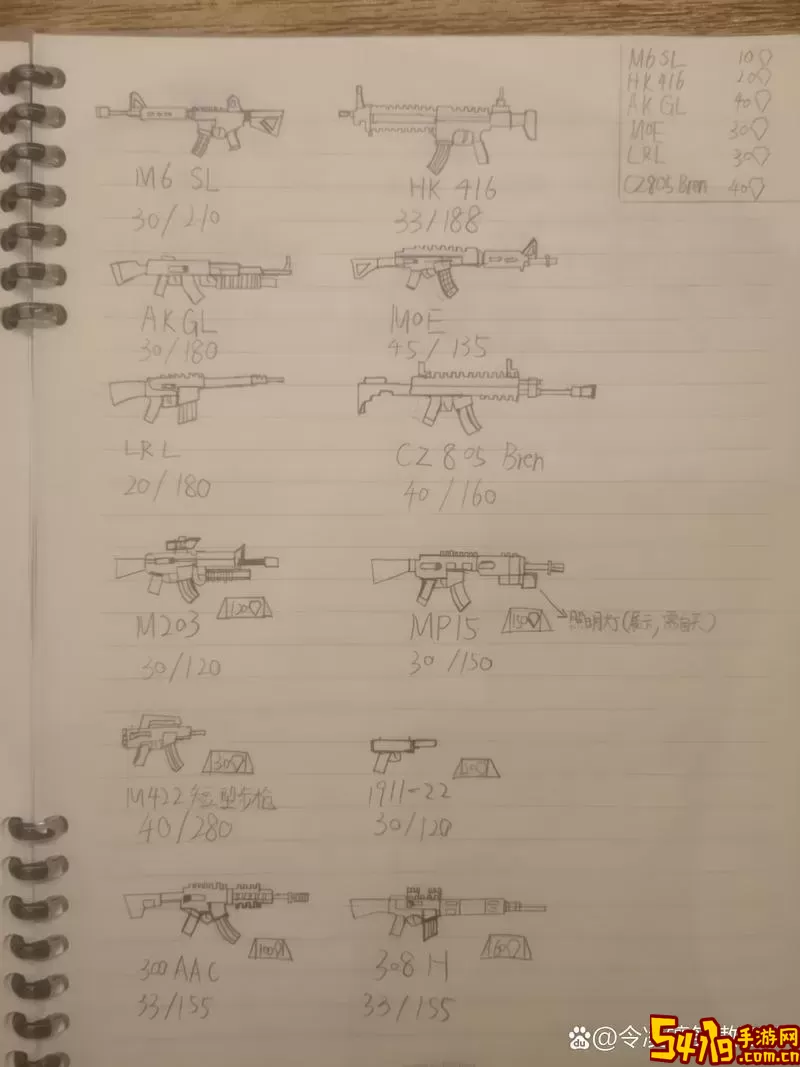 M6 SL 10
HK 416 20
AK GL 40
MOE 30
LRL 30
CZ805 Bren 40
M6 SL
30/210
HK 416
33/188
AK GL
30/180
MOE
45/135
LRL
20/180
CZ 805 Bren
40/160
120
M203
30/120
150
照明灯(展示,需自买)
MP15
30/150
30
M422 短型步枪
40/280
1911-22
30/120
100
300 AAC
33/155
60
308 H
33/155
@令
5419手游网
.com.cn